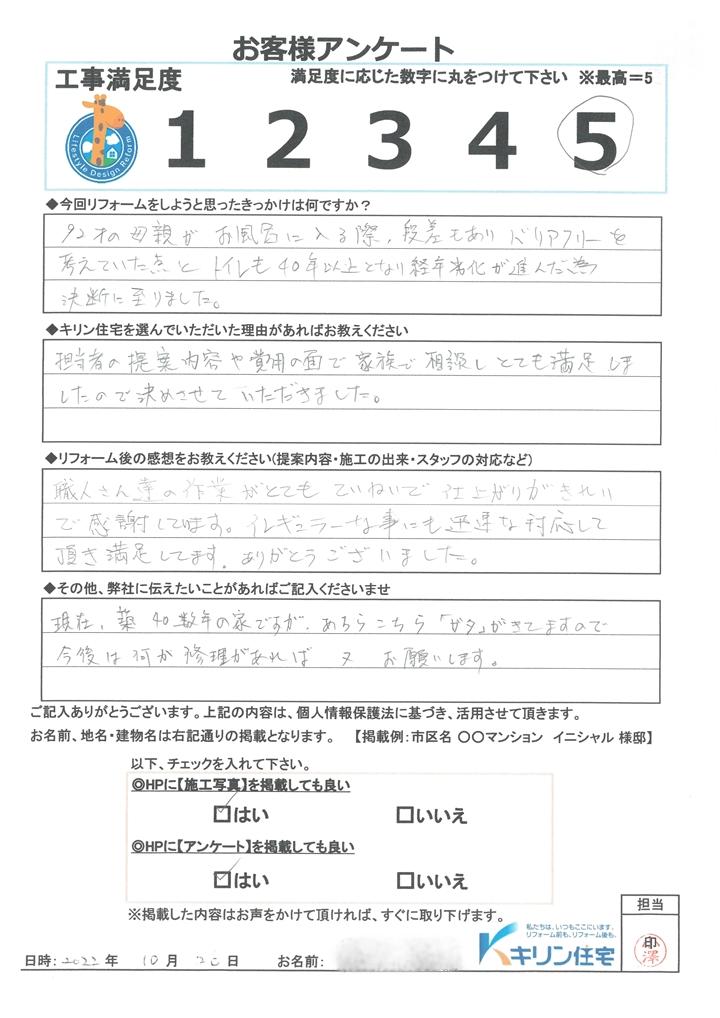 お客様アンケート
工事満足度 満足度に応じた数字に丸をつけて下さい ※最高＝5
Lifestyle Design Reform
1 2 3 4 5
◆今回リフォームをしようと思ったきっかけは何ですか？
92才の母親が お風呂に入る際、段差もあり バリアフリーを
考えていた点と トイレも40年以上となり経年劣化が進んだ為
決断に至りました。
◆キリン住宅を選んでいただいた理由があればお教えください
担当者の提案内容や費用の面で家族で相談しとても満足しま
したので決めさせていただきました。
◆リフォーム後の感想をお教えください(提案内容・施工の出来・スタッフの対応など)
職人さん達の作業がとてもていねいで仕上がりがきれい
で感謝してます。イレギュラーな事にも迅速な対応して
頂き満足してます。ありがとうございました。
◆その他、弊社に伝えたいことがあればご記入くださいませ
現在、築40数年の家ですが、あちらこちら「ガタ」がきてますので
今後は何か修理があれば 又 お願いします。
ご記入ありがとうございます。上記の内容は、個人情報保護法に基づき、活用させて頂きます。
お名前、地名・建物名は右記通りの掲載となります。 【掲載例：市区名 〇〇マンション イニシャル 様邸】
以下、チェックを入れて下さい。
◎HPに【施工写真】を掲載しても良い
☑はい □いいえ
◎HPに【アンケート】を掲載しても良い
☑はい □いいえ
※掲載した内容はお声をかけて頂ければ、すぐに取り下げます。
担当
印澤
私たちは、いつもここにいます。
リフォーム前も、リフォーム後も。
キリン住宅
日時：2022年 10月 20日 お名前：